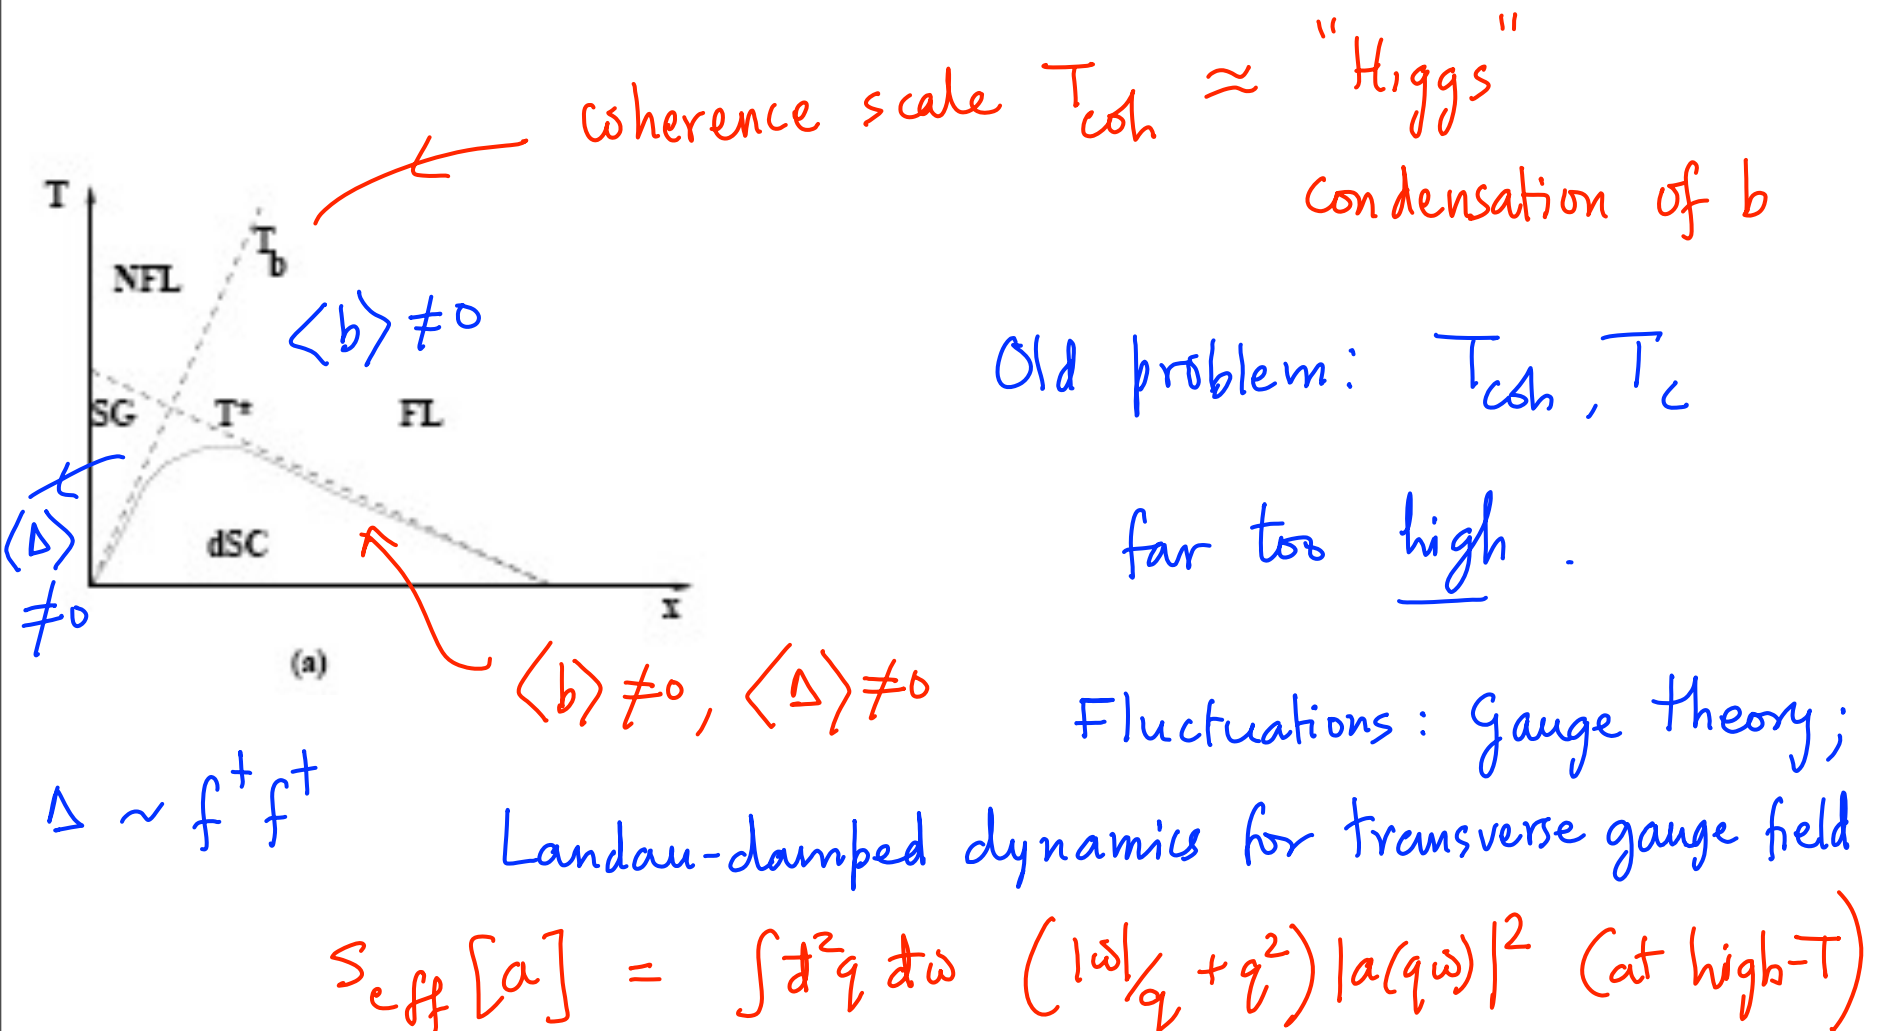 coherence scale T_coh ≈ "Higgs"
condensation of b
T
T_b
NFL
⟨b⟩ ≠ 0
Old problem: T_coh, T_c
SG
T*
FL
far too high.
⟨Δ⟩
≠ 0
dSC
x
(a)
⟨b⟩ ≠ 0, ⟨Δ⟩ ≠ 0
Fluctuations: Gauge theory;
Δ ~ f† f†
Landau-damped dynamics for transverse gauge field
S_eff [a] = ∫ d²q dω (|ω|/q + q²) |a(qω)|² (at high-T)